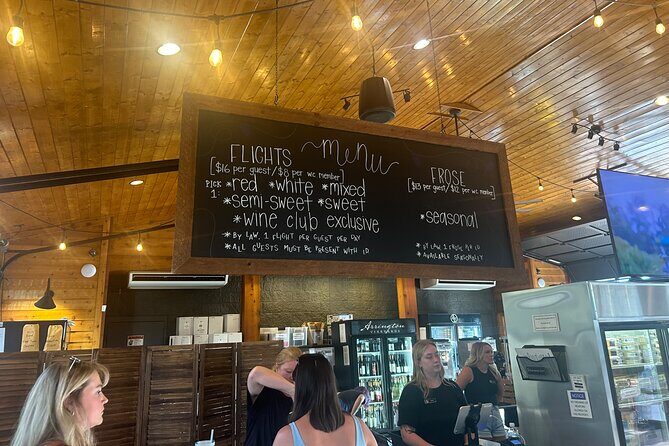 menu
FLIGHTS
[$16 per guest/$8 per wc member]
PICK 1: *red *white *mixed
*semi-sweet *sweet
*wine club exclusive
*BY LAW, 1 FLIGHT PER GUEST PER DAY
*ALL GUESTS MUST BE PRESENT WITH ID
FROSE
[$13 per guest/$12 per wc member]
*seasonal
*BY LAW 1 FROSE PER ID
*AVAILABLE SEASONALLY
Arrington
VINEYARDS
NOTICE